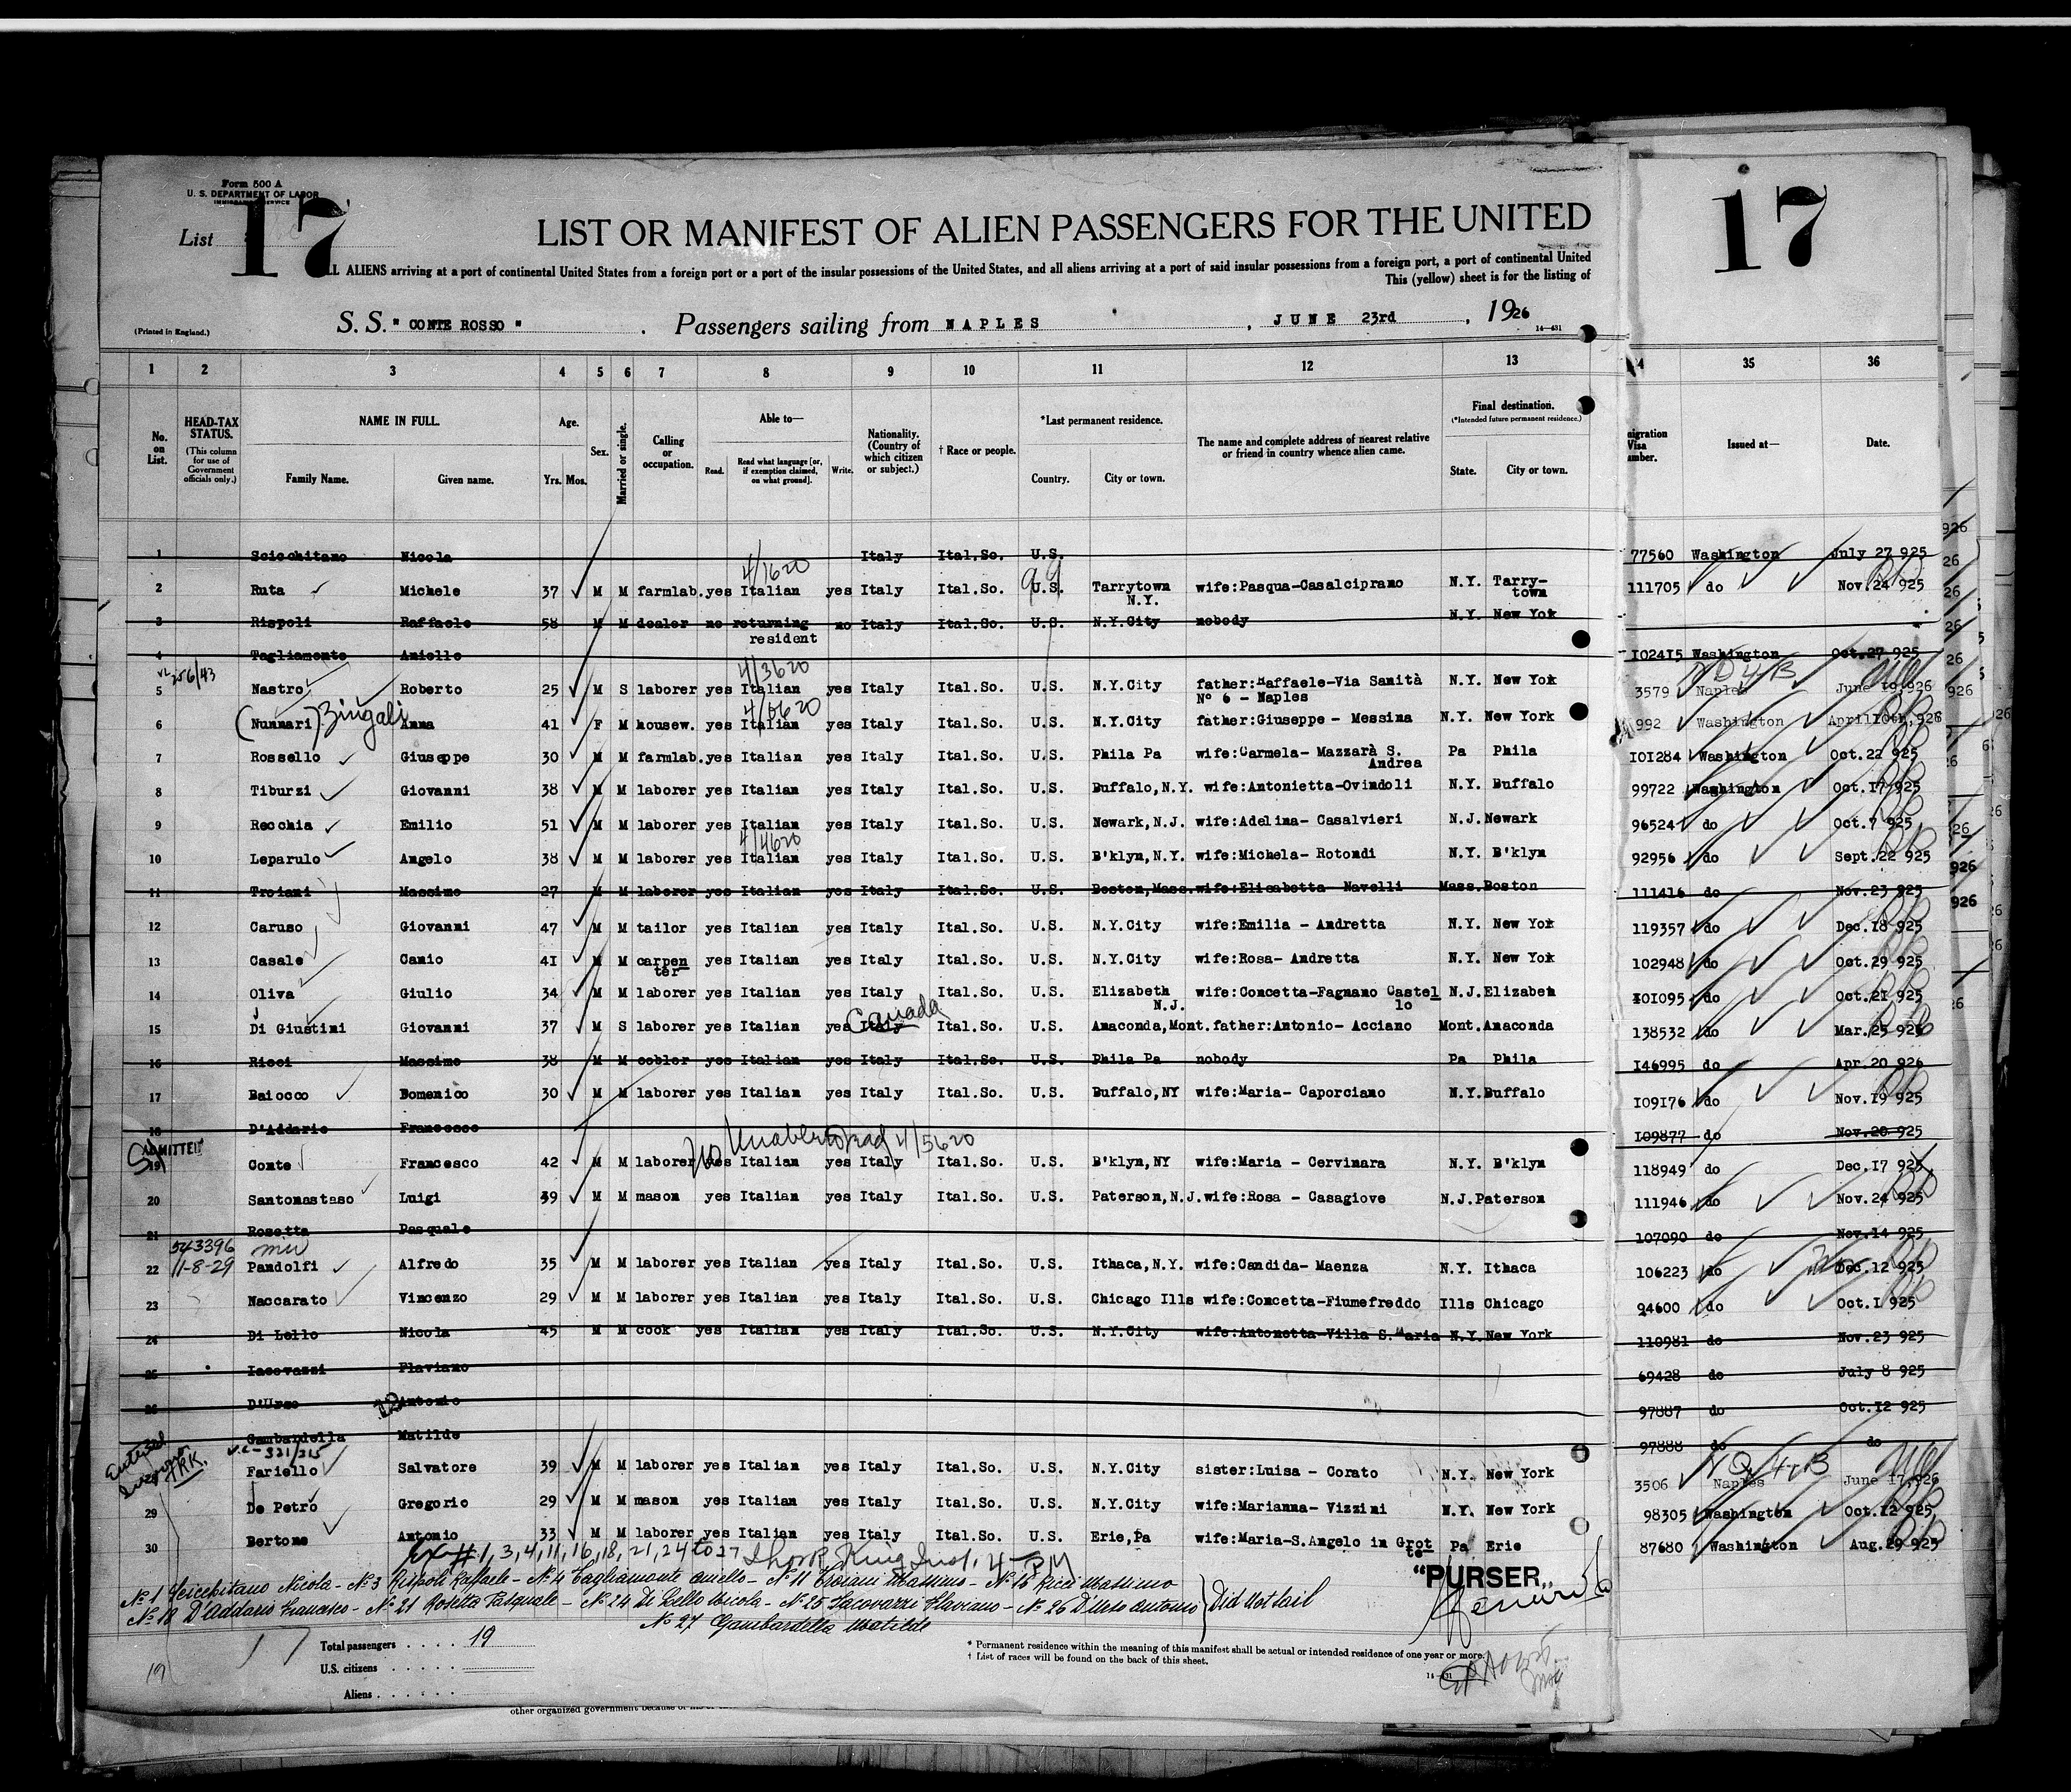 Form 500 A
U. S. DEPARTMENT OF LABOR
IMMIGRATION SERVICE
List 17
17
LIST OR MANIFEST OF ALIEN PASSENGERS FOR THE UNITED
LL ALIENS arriving at a port of continental United States from a foreign port or a port of the insular possessions of the United States, and all aliens arriving at a port of said insular possessions from a foreign port, a port of continental United
This (yellow) sheet is for the listing of
(Printed in England.)
S. S. "CONTE ROSSO". Passengers sailing from NAPLES, JUNE 23rd, 1926
14—431
1 2 3 4 5 6 7 8 9 10 11 12 13 4 35 36
No. on List.
HEAD-TAX STATUS. (This column for use of Government officials only.)
NAME IN FULL. Family Name. Given name.
Age. Yrs. Mos.
Sex.
Married or single.
Calling or occupation.
Able to— Read. Read what language [or, if exemption claimed, on what ground]. Write.
Nationality. (Country of which citizen or subject.)
† Race or people.
*Last permanent residence. Country. City or town.
The name and complete address of nearest relative or friend in country whence alien came.
Final destination. (*Intended future permanent residence.) State. City or town.
migration Visa umber.
Issued at—
Date.
1 Scicchitano Nicola Italy Ital.So. U.S. 77560 Washington July 27 925
4/1620
2 Ruta Michele 37 M M farmlab. yes Italian yes Italy Ital.So. U.S. Tarrytown N.Y. wife:Pasqua-Casalciprano N.Y. Tarry-town 111705 do Nov.24 925
3 Rispoli Raffaele 58 M M dealer no returning resident no Italy Ital.So. U.S. N.Y.City nobody N.Y. New Yok
4 Tagliamonte Aniello 102415 Washington Oct.27 925
256/43
4/3620
5 Nastro Roberto 25 M S laborer yes Italian yes Italy Ital.So. U.S. N.Y.City father:Raffaele-Via Sanità N° 6 - Naples N.Y. New Yok 3579 Naples June 19,926
6 (Nunnari) Zingali Anna 41 F M housew. yes Italian yes Italy Ital.So. U.S. N.Y.City father:Giuseppe - Messina N.Y. New York 992 Washington April10th,926
7 Rossello Giuseppe 30 M M farmlab. yes Italian yes Italy Ital.So. U.S. Phila Pa wife:Carmela- Mazzarà S. Andrea Pa Phila 101284 Washington Oct.22 925
8 Tiburzi Giovanni 38 M M laborer yes Italian yes Italy Ital.So. U.S. Buffalo,N.Y. wife:Antonietta-Ovindoli N.Y. Buffalo 99722 Washington Oct.17 925
9 Recchia Emilio 51 M M laborer yes Italian yes Italy Ital.So. U.S. Newark,N.J. wife:Adelina- Casalvieri N.J.Newark 96524 do Oct.7 925
4/4620
10 Leparulo Angelo 38 M M laborer yes Italian yes Italy Ital.So. U.S. B'klyn,N.Y. wife:Michela- Rotondi N.Y. B'klyn 92956 do Sept.22 925
11 Troiani Massimo 27 M M laborer yes Italian yes Italy Ital.So. U.S. Boston,Mass. wife:Elisabetta- Navelli Mass.Boston 111416 do Nov.23 925
12 Caruso Giovanni 47 M M tailor yes Italian yes Italy Ital.So. U.S. N.Y.City wife:Emilia - Andretta N.Y. New Yok 119357 do Dec.18 925
13 Casale Canio 41 M M carpenter yes Italian yes Italy Ital.So. U.S. N.Y.City wife:Rosa- Andretta N.Y. New Yok 102948 do Oct.29 925
14 Oliva Giulio 34 M M laborer yes Italian yes Italy Ital.So. U.S. Elizabeth N.J. wife:Concetta-Fagnano Castello N.J.Elizabeh 101095 do Oct.21 925
Canada
15 Di Giustini Giovanni 37 M S laborer yes Italian yes Italy Ital.So. U.S. Anaconda,Mont. father:Antonio- Acciano Mont.Anaconda 138532 do Mar.25 926
16 Ricci Massimo 38 M M cobler yes Italian yes Italy Ital.So. U.S. Phila Pa nobody Pa Phila 146995 do Apr.20 926
17 Baiocco Domenico 30 M M laborer yes Italian yes Italy Ital.So. U.S. Buffalo,NY wife:Maria- Caporciano N.Y.Buffalo 109176 do Nov.19 925
18 D'Addario Francesco 109877 do Nov.20 925
ADMITTED
No Unable to read 4/5620
19 Conte Francesco 42 M M laborer yes Italian yes Italy Ital.So. U.S. B'klyn,NY wife:Maria - Cervinara N.Y. B'klyn 118949 do Dec.17 925
20 Santomastaso Luigi 39 M M mason yes Italian yes Italy Ital.So. U.S. Paterson,N.J. wife:Rosa - Casagiove N.J.Paterson 111946 do Nov.24 925
21 Rosetta Pasquale 107090 do Nov.14 925
543396
11-8-29
22 Pandolfi Alfredo 35 M M laborer yes Italian yes Italy Ital.So. U.S. Ithaca,N.Y. wife:Candida- Maenza N.Y. Ithaca 106223 do Dec.12 925
23 Naccarato Vincenzo 29 M M laborer yes Italian yes Italy Ital.So. U.S. Chicago Ills wife:Concetta-Fiumefreddo Ills Chicago 94600 do Oct.1 925
24 Di Lello Nicola 45 M M cook yes Italian yes Italy Ital.So. U.S. N.Y.City wife:Antonetta-Villa S.Maria N.Y.New York 110981 do Nov.23 925
25 Iacovazzi Flaviano 69428 do July 8 925
26 D'Urso Antonio 97887 do Oct.12 925
Gambardella Matilde 97888 do do
321/315
Fariello Salvatore 39 M M laborer yes Italian yes Italy Ital.So. U.S. N.Y.City sister:Luisa - Corato N.Y. New York 3506 Naples June 17,926
29 De Petro Gregorio 29 M M mason yes Italian yes Italy Ital.So. U.S. N.Y.City wife:Marianna- Vizzini N.Y. New York 98305 Washington Oct.12 925
30 Bertone Antonio 33 M M laborer yes Italian yes Italy Ital.So. U.S. Erie,Pa wife:Maria-S.Angelo in Grotte Pa Erie 87680 Washington Aug.29 925
# 1, 3, 4, 11, 16, 18, 21, 24 to 27
N° 1 Scicchitano Nicola - N° 3 Rispoli Raffaele - N° 4 Tagliamonte Aniello - N° 11 Troiani Massimo - N° 16 Ricci Massimo
N° 18 D'Addario Francesco - N° 21 Rosetta Pasquale - N° 24 Di Lello Nicola - N° 25 Iacovazzi Flaviano - N° 26 D'Urso Antonio } Did not sail
N° 27 Gambardella Matilde
"PURSER"
Total passengers . . . . 19
U.S. citizens . . . . . .
Aliens . . . . . . .
17
19
* Permanent residence within the meaning of this manifest shall be actual or intended residence of one year or more.
† List of races will be found on the back of this sheet.
14—431